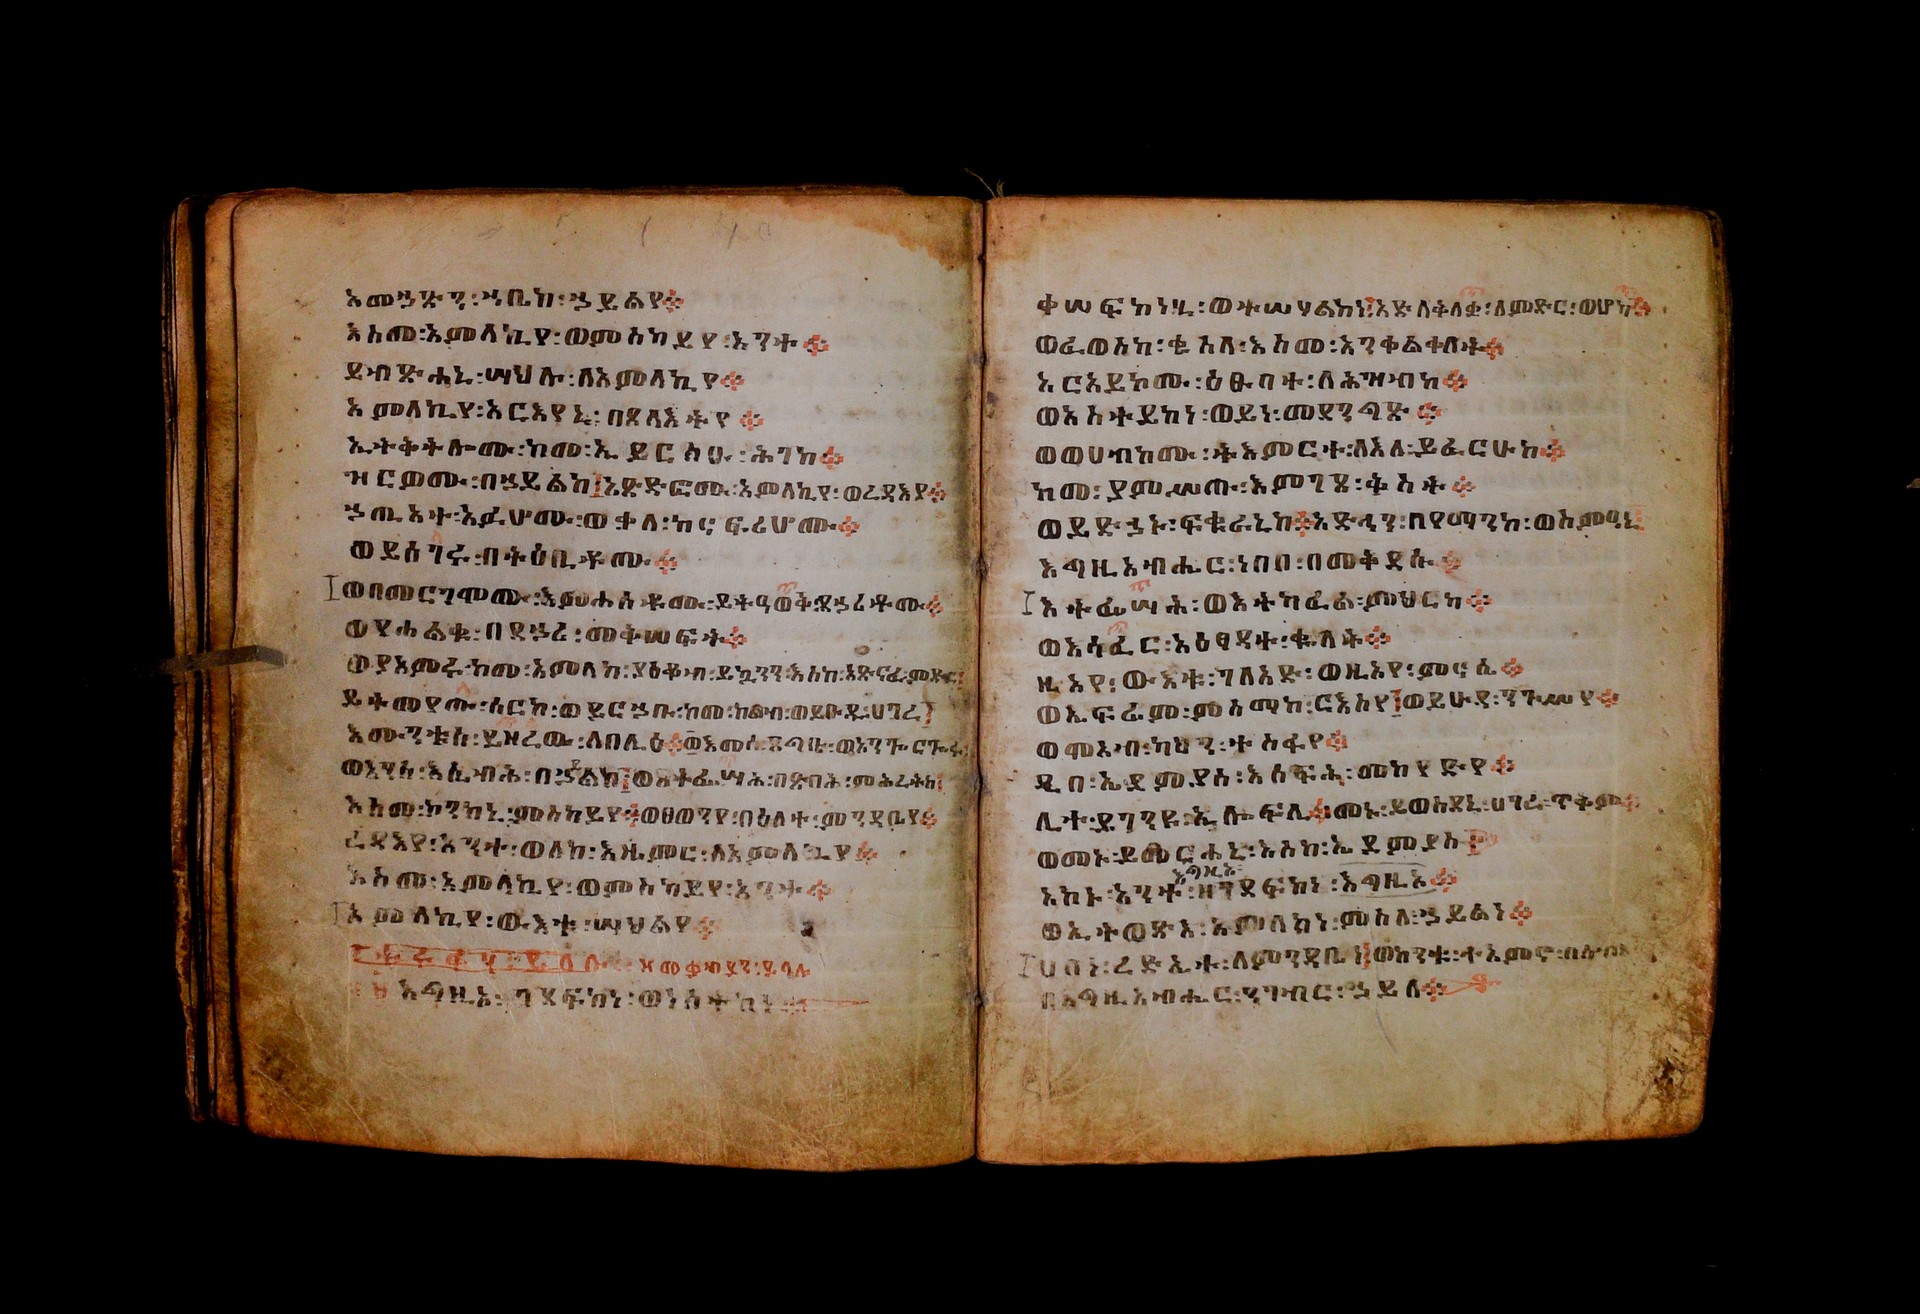 እመኀፅን፡ኀቤከ፡ኀይልየ።
እስመ፡አምላኪየ፡ወምስካይየ፡አንተ።
ይብጽሐኒ፡ሣህሉ፡ለአምላኪየ።
አምላኪየ፡አርእየኒ፡በጸላእትየ።
ኢትቅትሎሙ፡ከመ፡ኢይርስዑ፡ሕገከ።
ዝርዎሙ፡በኀይልከ።አጽድፎሙ፡አምላኪየ፡ወረዳእየ።
ኀጢአተ፡አፉሆሙ፡ወቃለ፡ከናፍሪሆሙ።
ወይሰገሩ፡በትዕቢቶሙ።
ወበመርገሞሙ፡እምሐሰቶሙ፡ይትዓወቅ፡ደኃሪቶሙ።
ወየሐልቁ፡በደኃሪ፡መቅሠፍት።
ወያአምሩ፡ከመ፡አምላከ፡ያዕቆብ፡ይኴንን፡እስከ፡አጽናፈ፡ምድር።
ይትመየጡ፡ሰርከ፡ወይርኀቡ፡ከመ፡ከልብ፡ወይዑዱ፡ሀገረ።
እሙንቱሰ፡ይዘረዉ፡ለበሊዕ።ወእመሰ፡ጸግቡ፡ወአንጐርጐሩ።
ወአንሰ፡እሴብሕ፡በኀይልከ።ወእትፌሣሕ፡በጽባሕ፡ምሕረተከ።
እስመ፡ኮንከኒ፡ምስካይየ።ወፀወንየ፡በዕለተ፡ምንዳቤየ።
ረዳእየ፡አንተ፡ወለከ፡እዜምር፡ለአምላኪየ።
እስመ፡አምላኪየ፡ወምስካይየ፡አንተ።
አምላኪየ፡ውእቱ፡ሣህልየ።
እግዚኦ፡ገደፍከነ፡ወነሰትከነ።
ቀሠፍከነሂ፡ወተሣሃልከነ።አድለቅለቃ፡ለምድር፡ወሆካ።
ወፈወስከ፡ቁስላ፡እስመ፡አንቀልቀለት።
አርአይኮሙ፡ዕፁባተ፡ለሕዝብከ።
ወአስተይከነ፡ወይነ፡መደንግፅ።
ወወሀብኮሙ፡ትእምርተ፡ለእለ፡ይፈርሁከ።
ከመ፡ያምሥጡ፡እምገጸ፡ቅስት።
ወይድኀኑ፡ፍቁራኒከ።አድኅን፡በየማንከ፡ወስምዓኒ።
እግዚአብሔር፡ነበበ፡በመቅደሱ።
እትፌሣሕ፡ወእትካፈል፡ምህርከ።
ወእሳፈር፡አዕፃዳተ፡ቄላት።
ዚአየ፡ውእቱ፡ገለአድ፡ወዚአየ፡ምናሴ።
ወኤፍሬም፡ምስማከ፡ርእስየ።ወይሁዳ፡ንጉሥየ።
ወሞአብ፡ካህን፡ተስፋየ።
ዲበ፡ኤዶምያስ፡እሰፍሕ፡መከየድየ።
ሊተ፡ይገንዩ፡ኢሎፍሊ።መኑ፡ይወስደኒ፡ሀገረ፡ጥቅም።
ወመኑ፡ይመርሐኒ፡እስከ፡ኤዶምያስ።
አኮኑ፡አንተ፡እግዚኦ፡ዘገደፍከነ፡እግዚኦ።
ወኢትወፅእ፡አምላክነ፡ምስለ፡ኀይልነ።
ሀበነ፡ረድኤተ፡ለምንዳቤነ።ወከንቱ፡ተአምኖ፡በሰብእ
በእግዚአብሔር፡ንገብር፡ኀይለ።